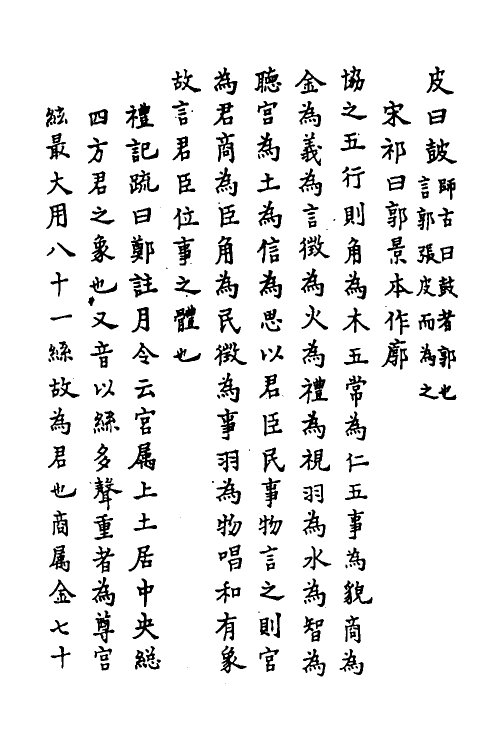 皮曰鼓師古曰鼓者郭也
言郭張皮而為之
宋祁曰郭景本作廓
協之五行則角為木五常為仁五事為貌商為
金為義為言徵為火為禮為視羽為水為智為
聽宮為土為信為思以君臣民事物言之則宮
為君商為臣角為民徵為事羽為物唱和有象
故言君臣位事之體也
禮記疏曰鄭註月令云宮屬上土居中央緫
四方君之象也又音以絲多聲重者為尊宮
絃最大用八十一絲故為君也商属金七十